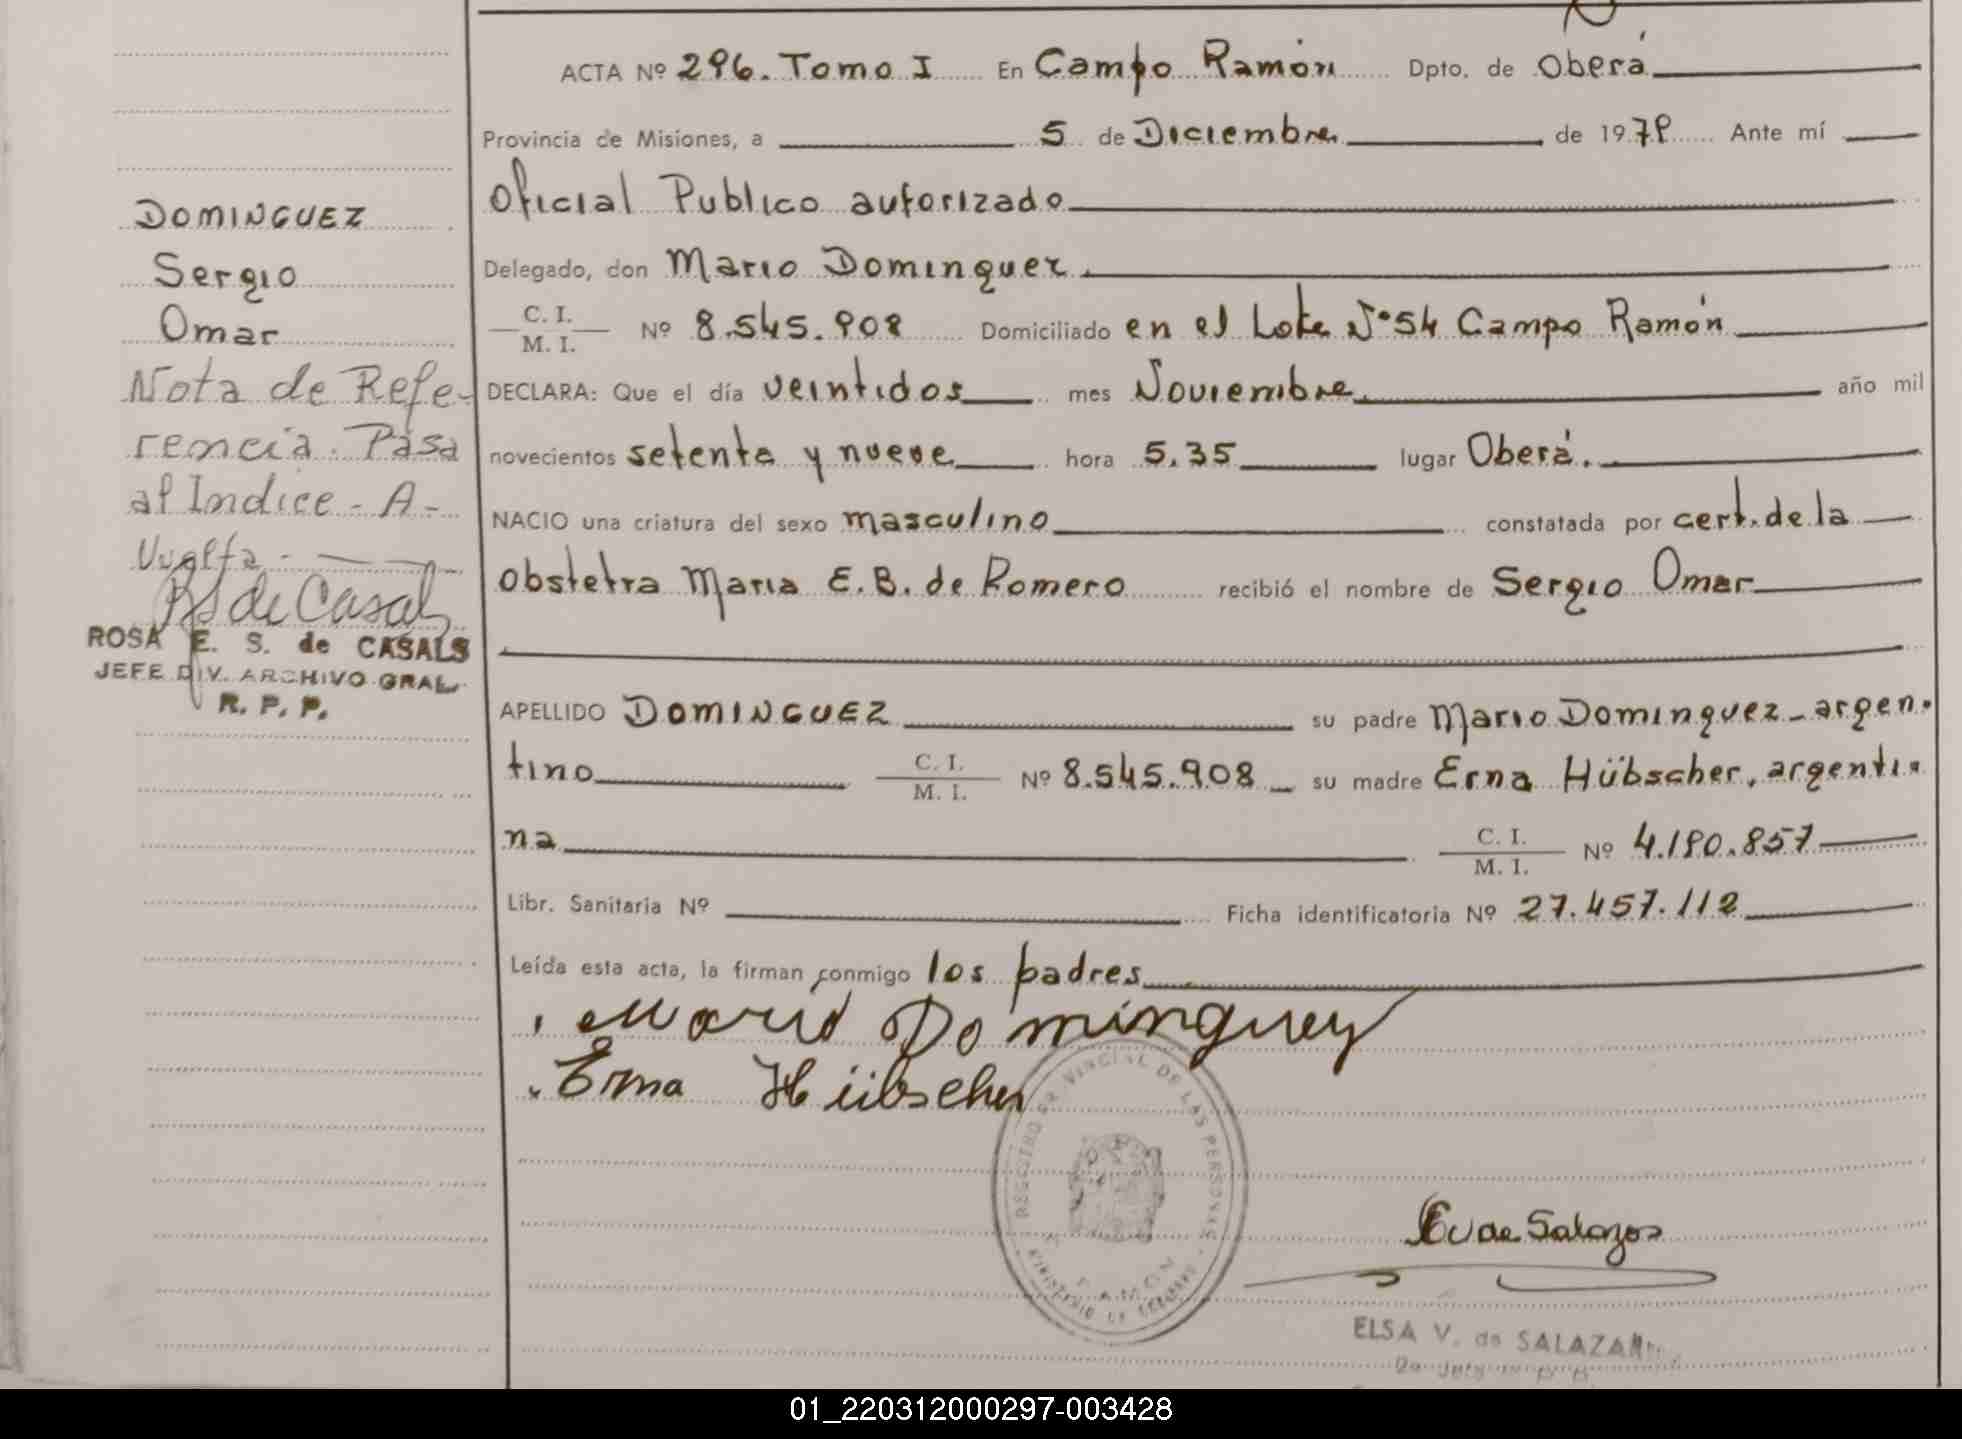 ACTA Nº 296. Tomo I En Campo Ramón Dpto. de Oberá
Provincia de Misiones, a 5 de Diciembre de 1979 Ante mí
Oficial Publico autorizado
Delegado, don Mario Dominguez
C. I.
M. I. Nº 8.545.908 Domiciliado en el Lote Nº 54 Campo Ramón
DECLARA: Que el día veintidos mes Noviembre año mil
novecientos setenta y nueve hora 5.35 lugar Oberá.
NACIO una criatura del sexo masculino constatada por cert. de la
Obstetra Maria E. B. de Romero recibió el nombre de Sergio Omar
APELLIDO DOMINGUEZ su padre Mario Dominguez - argen-
tino C. I. M. I. Nº 8.545.908 su madre Erna Hübscher, argenti-
na C. I. M. I. Nº 4.190.857
Libr. Sanitaria Nº Ficha identificatoria Nº 27.457.112
Leída esta acta, la firman conmigo los padres
Mario Dominguez
Erna Hübscher
REGISTRO PROVINCIAL DE LAS PERSONAS
RAMON
MINISTERIO DE GOBIERNO
E V de Salazar
ELSA V. de SALAZAR
DOMINGUEZ
Sergio
Omar
Nota de Refe-
rencia. Pasa
al Indice - A -
Vuelta -
RS de Casals
ROSA E. S. de CASALS
JEFE DIV. ARCHIVO GRAL.
R. P. P.
01_220312000297-003428